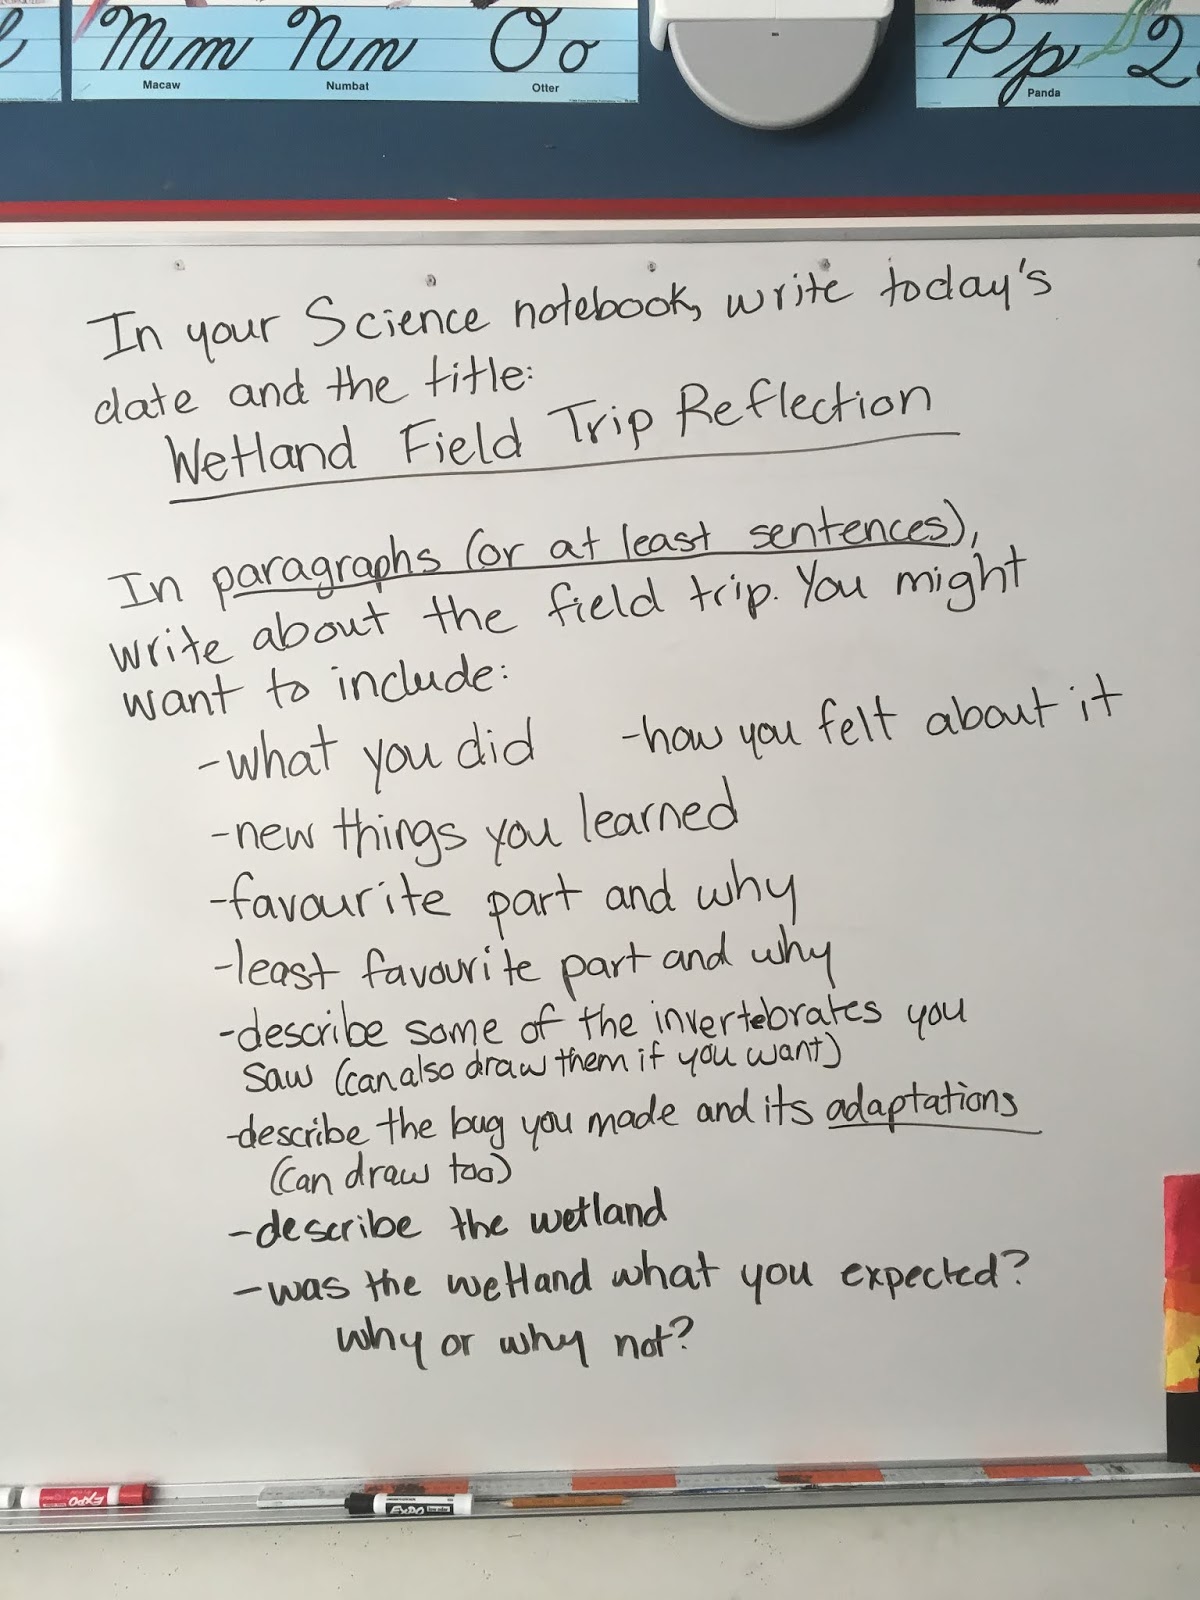 l
Mm Nn Oo
Macaw Numbat Otter
Pp Q
Panda
In your Science notebook, write today's
date and the title:
Wetland Field Trip Reflection
In paragraphs (or at least sentences),
write about the field trip. You might
want to include:
-what you did -how you felt about it
-new things you learned
-favourite part and why
-least favourite part and why
-describe some of the invertebrates you
saw (can also draw them if you want)
-describe the bug you made and its adaptations
(can draw too)
-describe the wetland
-was the wetland what you expected?
why or why not?
EXPO
EXPO